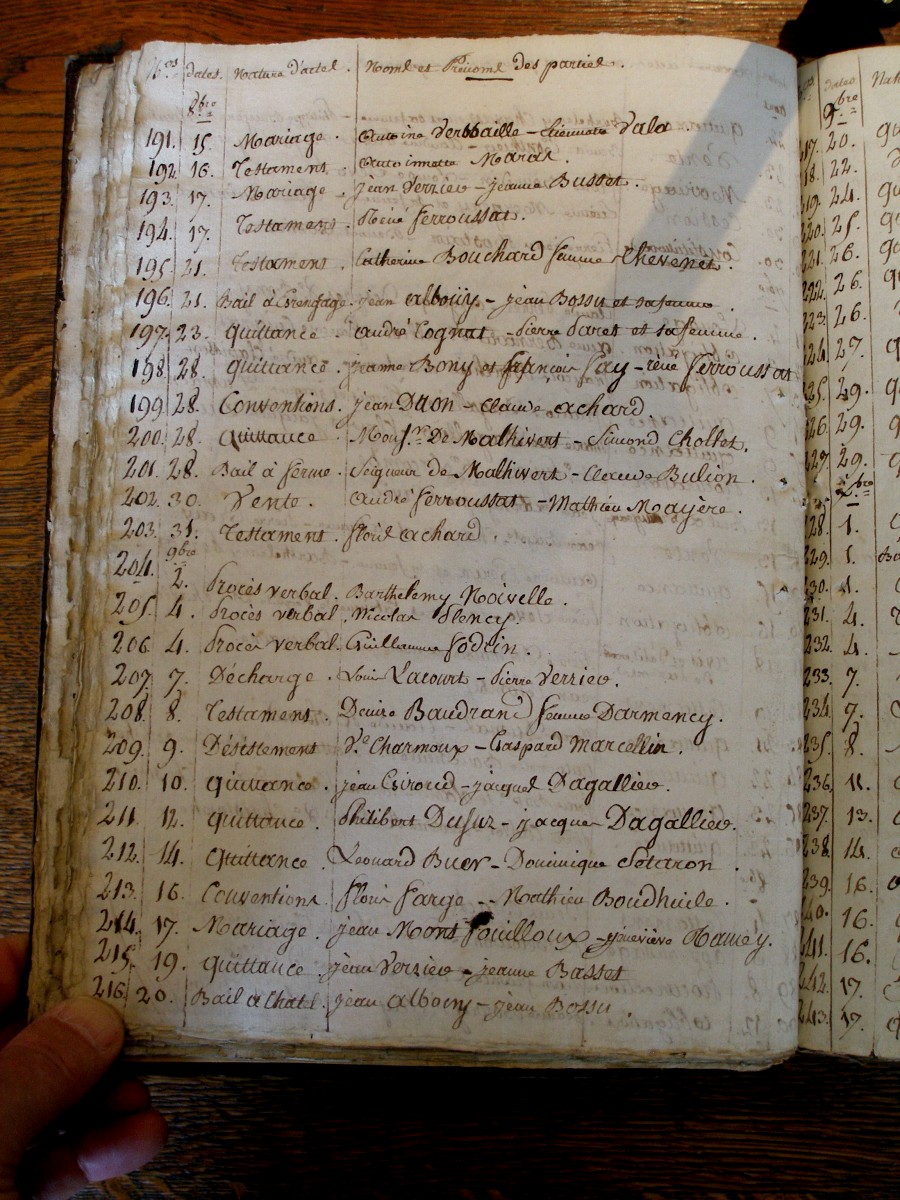 N.os dates. Nature d'actes. Noms et Prénoms des parties.
8bre
191. 15. Mariage. Antoine Verbaille - Vala
192. 16. Testament. Antoinette
193. 17. Mariage. jean Verzieu - jeanne Busset.
194. 17. Testament. ferroussat.
195. 21. Testament. Catherine Bouchard femme Chevenet.
196. 21. Bail à Grengeage. jean alboüy - jean Bossu et sa femme
197. 23. quittance. andré Cognat - Pierre et sa femme.
198. 28. quittance. jeanne Bony et françois fay - ferroussat
199. 28. Conventions. jean - Claude achard.
200. 28. quittance. Mons.r De Malhivert - Simond Chollet.
201. 28. Bail à ferme. Seigneur de Malhivert - Claude Bulion.
202. 30. Vente. andré ferroussat - Mathieu Moayère.
203. 31. Testament. achard.
9bre
204. 2. Procès verbal. Barthelemy Noivelle.
205. 4. Procès verbal. Nicolas
206. 4. Procès verbal. Guillaume
207. 7. Décharge. Louis Lacourt - Pierre Verzieu.
208. 8. Testament. Baudrand femme Darmency.
209. 9. Désistement V.e Charmoux - Gaspard Marcellin.
210. 10. quittance. jean Giroud - jacques Dagallieu.
211. 12. quittance. Philibert Dufur - jacques Dagallieu.
212. 14. quittance Leonard Buer - Dominique
213. 16. Conventions farge - Mathieu Boudhuile.
214. 17. Mariage. jean Montfouilloux - genevieve Ramey.
215. 19. quittance jean Verzieu - jeanne Basset
216. 20. Bail à Chatl. jean alboüy - jean Bossu.
dates
9bre
217. 20.
218. 22.
219. 24.
220. 25.
221. 26.
222. 26
223. 26.
224. 27.
225. 29.
226. 29.
227. 29.
Xbre
228. 1.
229. 1.
230. 1.
231. 4.
232. 4.
233. 7.
234. 7.
235. 8.
236. 11.
237. 13.
238. 14.
239. 16.
240. 16.
241. 16.
242. 17.
243. 17.